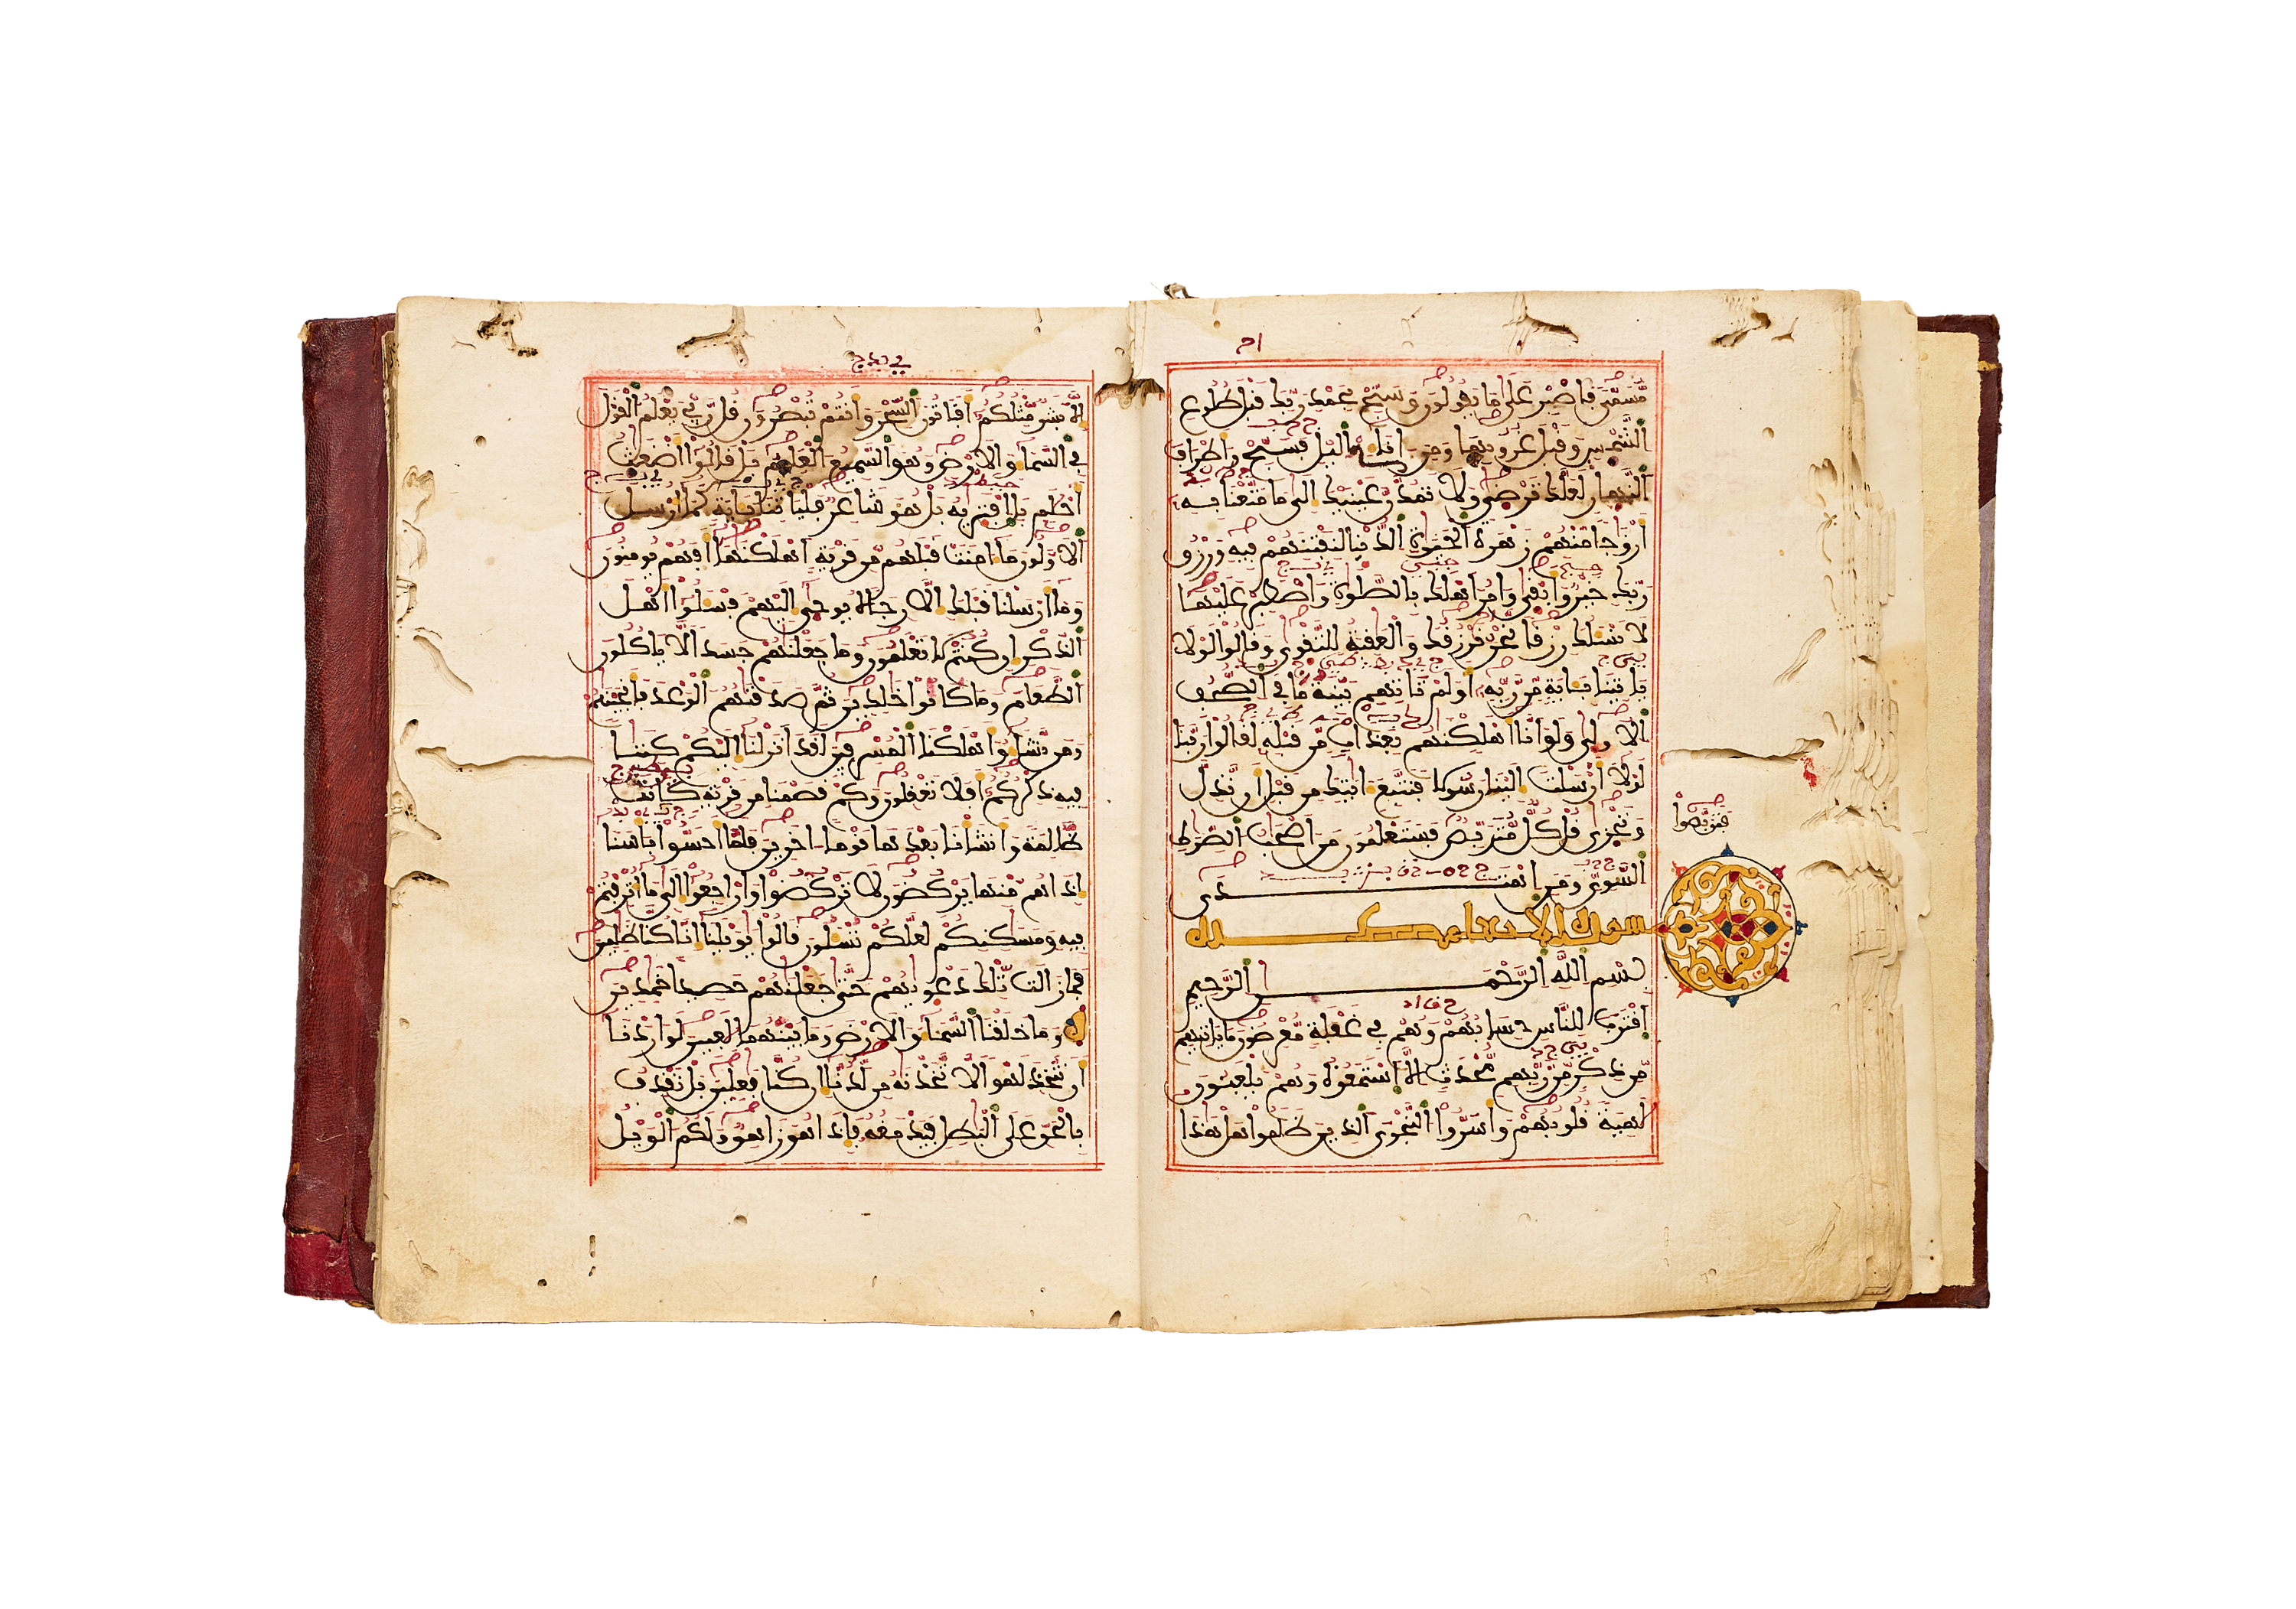 مُّسَمًّى فَاصْبِرْ عَلَى مَا يَقُولُونَ وَسَبِّحْ بِحَمْدِ رَبِّكَ قَبْلَ طُلُوعِ
الشَّمْسِ وَقَبْلَ غُرُوبِهَا وَمِنَ اٰنَآءِ الَّيْلِ فَسَبِّحْ وَأَطْرَافَ
النَّهَارِ لَعَلَّكَ تَرْضَى وَلَا تَمُدَّنَّ عَيْنَيْكَ إِلَى مَا مَتَّعْنَا بِهِ
أَزْوَاجًا مِّنْهُمْ زَهْرَةَ الْحَيَوٰةِ الدُّنْيَا لِنَفْتِنَهُمْ فِيهِ وَرِزْقُ
رَبِّكَ خَيْرٌ وَأَبْقَى وَامُرَ اهْلَكَ بِالصَّلَوٰةِ وَاصْطَبِرْ عَلَيْهَا
لَا نَسْـَٔلُكَ رِزْقًا نَّحْنُ نَرْزُقُكَ وَالْعَٰقِبَةُ لِلتَّقْوَى وَقَالُوا لَوْلَا
يَاتِينَا بِـَٔايَةٍ مِّن رَّبِّهِ أَوَلَمْ تَاتِهِم بَيِّنَةُ مَا فِي الصُّحُفِ
الْأُولَى وَلَوَ انَّا أَهْلَكْنَٰهُم بِعَذَابٍ مِّن قَبْلِهِ لَقَالُوا رَبَّنَا
لَوْلَا أَرْسَلْتَ إِلَيْنَا رَسُولًا فَنَتَّبِعَ ءَايَٰتِكَ مِن قَبْلِ أَن نَّذِلَّ
وَنَخْزَى قُلْ كُلٌّ مُّتَرَبِّصٌ فَسَتَعْلَمُونَ مَنَ اصْحَٰبُ الصِّرَٰطِ
فَتَرَبَّصُوا
السَّوِيِّ وَمَنِ اهْتَدَى
سورة الانبيا
بِسْمِ اللَّهِ الرَّحْمَٰنِ الرَّحِيمِ
اقْتَرَبَ لِلنَّاسِ حِسَابُهُمْ وَهُمْ فِي غَفْلَةٍ مُّعْرِضُونَ مَا يَاتِيهِم
مِّن ذِكْرٍ مِّن رَّبِّهِم مُّحْدَثٍ إِلَّا اسْتَمَعُوهُ وَهُمْ يَلْعَبُونَ
لَٰهِيَةً قُلُوبُهُمْ وَأَسَرُّوا النَّجْوَى الَّذِينَ ظَلَمُوا هَلْ هَٰذَا
إِلَّا بَشَرٌ مِّثْلُكُمُ أَفَتَاتُونَ السِّحْرَ وَأَنتُمْ تُبْصِرُونَ قُل رَّبِّي يَعْلَمُ الْقَوْلَ
فِي السَّمَآءِ وَالْأَرْضِ وَهُوَ السَّمِيعُ الْعَلِيمُ بَلْ قَالُوا أَضْغَٰثُ
أَحْلَٰمٍ بَلِ افْتَرَيٰهُ بَلْ هُوَ شَاعِرٌ فَلْيَاتِنَا بِـَٔايَةٍ كَمَا أُرْسِلَ
الْأَوَّلُونَ مَا ءَامَنَتْ قَبْلَهُم مِّن قَرْيَةٍ أَهْلَكْنَٰهَا أَفَهُمْ يُومِنُونَ
وَمَا أَرْسَلْنَا قَبْلَكَ إِلَّا رِجَالًا يُوحَى إِلَيْهِمْ فَسْـَٔلُوا أَهْلَ
الذِّكْرِ إِن كُنتُمْ لَا تَعْلَمُونَ وَمَا جَعَلْنَٰهُمْ جَسَدًا لَّا يَاكُلُونَ
الطَّعَامَ وَمَا كَانُوا خَٰلِدِينَ ثُمَّ صَدَقْنَٰهُمُ الْوَعْدَ فَأَنجَيْنَٰهُمْ
وَمَن نَّشَآءُ وَأَهْلَكْنَا الْمُسْرِفِينَ لَقَدَ انزَلْنَا إِلَيْكُمْ كِتَٰبًا
فِيهِ ذِكْرُكُمُ أَفَلَا تَعْقِلُونَ وَكَمْ قَصَمْنَا مِن قَرْيَةٍ كَانَتْ
ظَالِمَةً وَأَنشَانَا بَعْدَهَا قَوْمًا اٰخَرِينَ فَلَمَّا أَحَسُّوا بَاسَنَا
إِذَا هُم مِّنْهَا يَرْكُضُونَ لَا تَرْكُضُوا وَارْجِعُوا إِلَى مَا أُتْرِفْتُمْ
فِيهِ وَمَسَٰكِنِكُمْ لَعَلَّكُمْ تُسْـَٔلُونَ قَالُوا يَٰوَيْلَنَا إِنَّا كُنَّا ظَٰلِمِينَ
فَمَا زَالَت تِّلْكَ دَعْوَيٰهُمْ حَتَّى جَعَلْنَٰهُمْ حَصِيدًا خَٰمِدِينَ
وَمَا خَلَقْنَا السَّمَآءَ وَالْأَرْضَ وَمَا بَيْنَهُمَا لَٰعِبِينَ لَوَ ارَدْنَا
أَن نَّتَّخِذَ لَهْوًا لَّاتَّخَذْنَٰهُ مِن لَّدُنَّا إِن كُنَّا فَٰعِلِينَ بَلْ نَقْذِفُ
بِالْحَقِّ عَلَى الْبَٰطِلِ فَيَدْمَغُهُ فَإِذَا هُوَ زَاهِقٌ وَلَكُمُ الْوَيْلُ